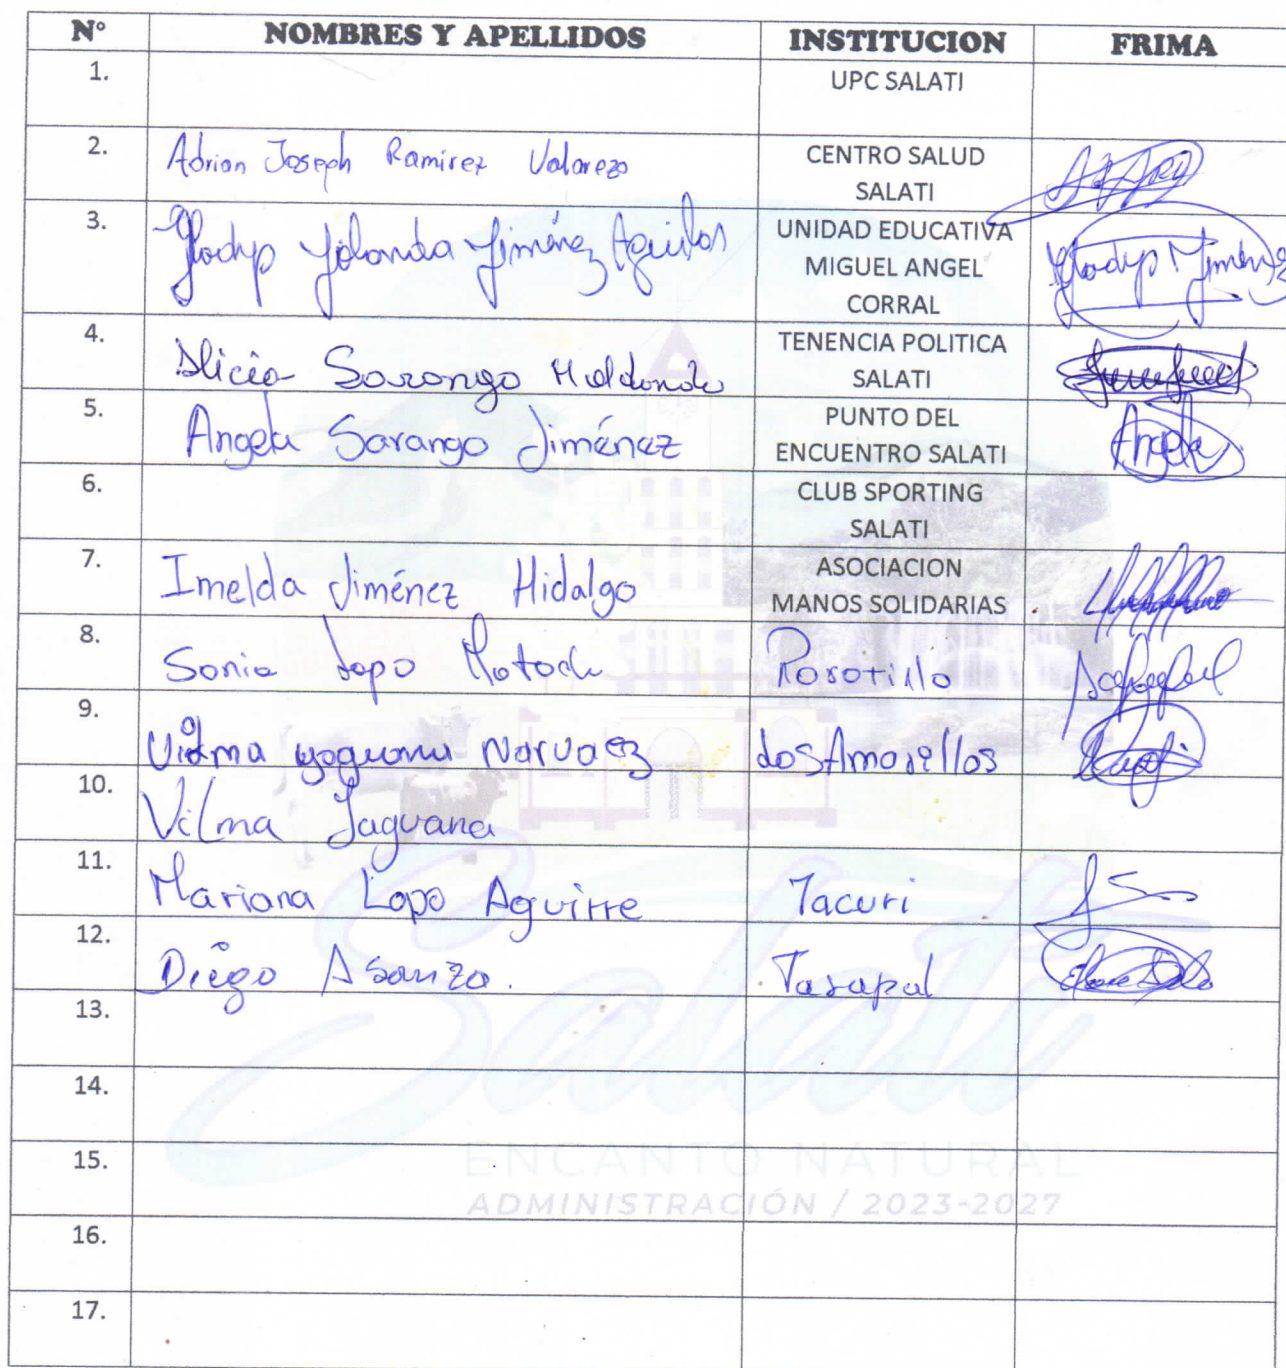 N° NOMBRES Y APELLIDOS INSTITUCION FRIMA
1. UPC SALATI
2. Adrian Joseph Ramirez Valarezo CENTRO SALUD
SALATI
3. Gladys Yolanda Jiménez Aguilar UNIDAD EDUCATIVA
MIGUEL ANGEL
CORRAL
Gladys Jiménez
4. Alicia Sarango Maldonado TENENCIA POLITICA
SALATI
5. Angela Sarango Jiménez PUNTO DEL
ENCUENTRO SALATI
Angela
6. CLUB SPORTING
SALATI
7. Imelda Jiménez Hidalgo ASOCIACION
MANOS SOLIDARIAS
8. Sonia Lapo Porotillo
9. Vilma yaguana Narvaez los Amarellos
10. Vilma Jaguana
11. Mariana Lapo Aguirre Tacuri
12. Diego Asanza. Tasapal
13.
14.
15.
16.
17.
Salati
ENCANTO NATURAL
ADMINISTRACIÓN / 2023-2027